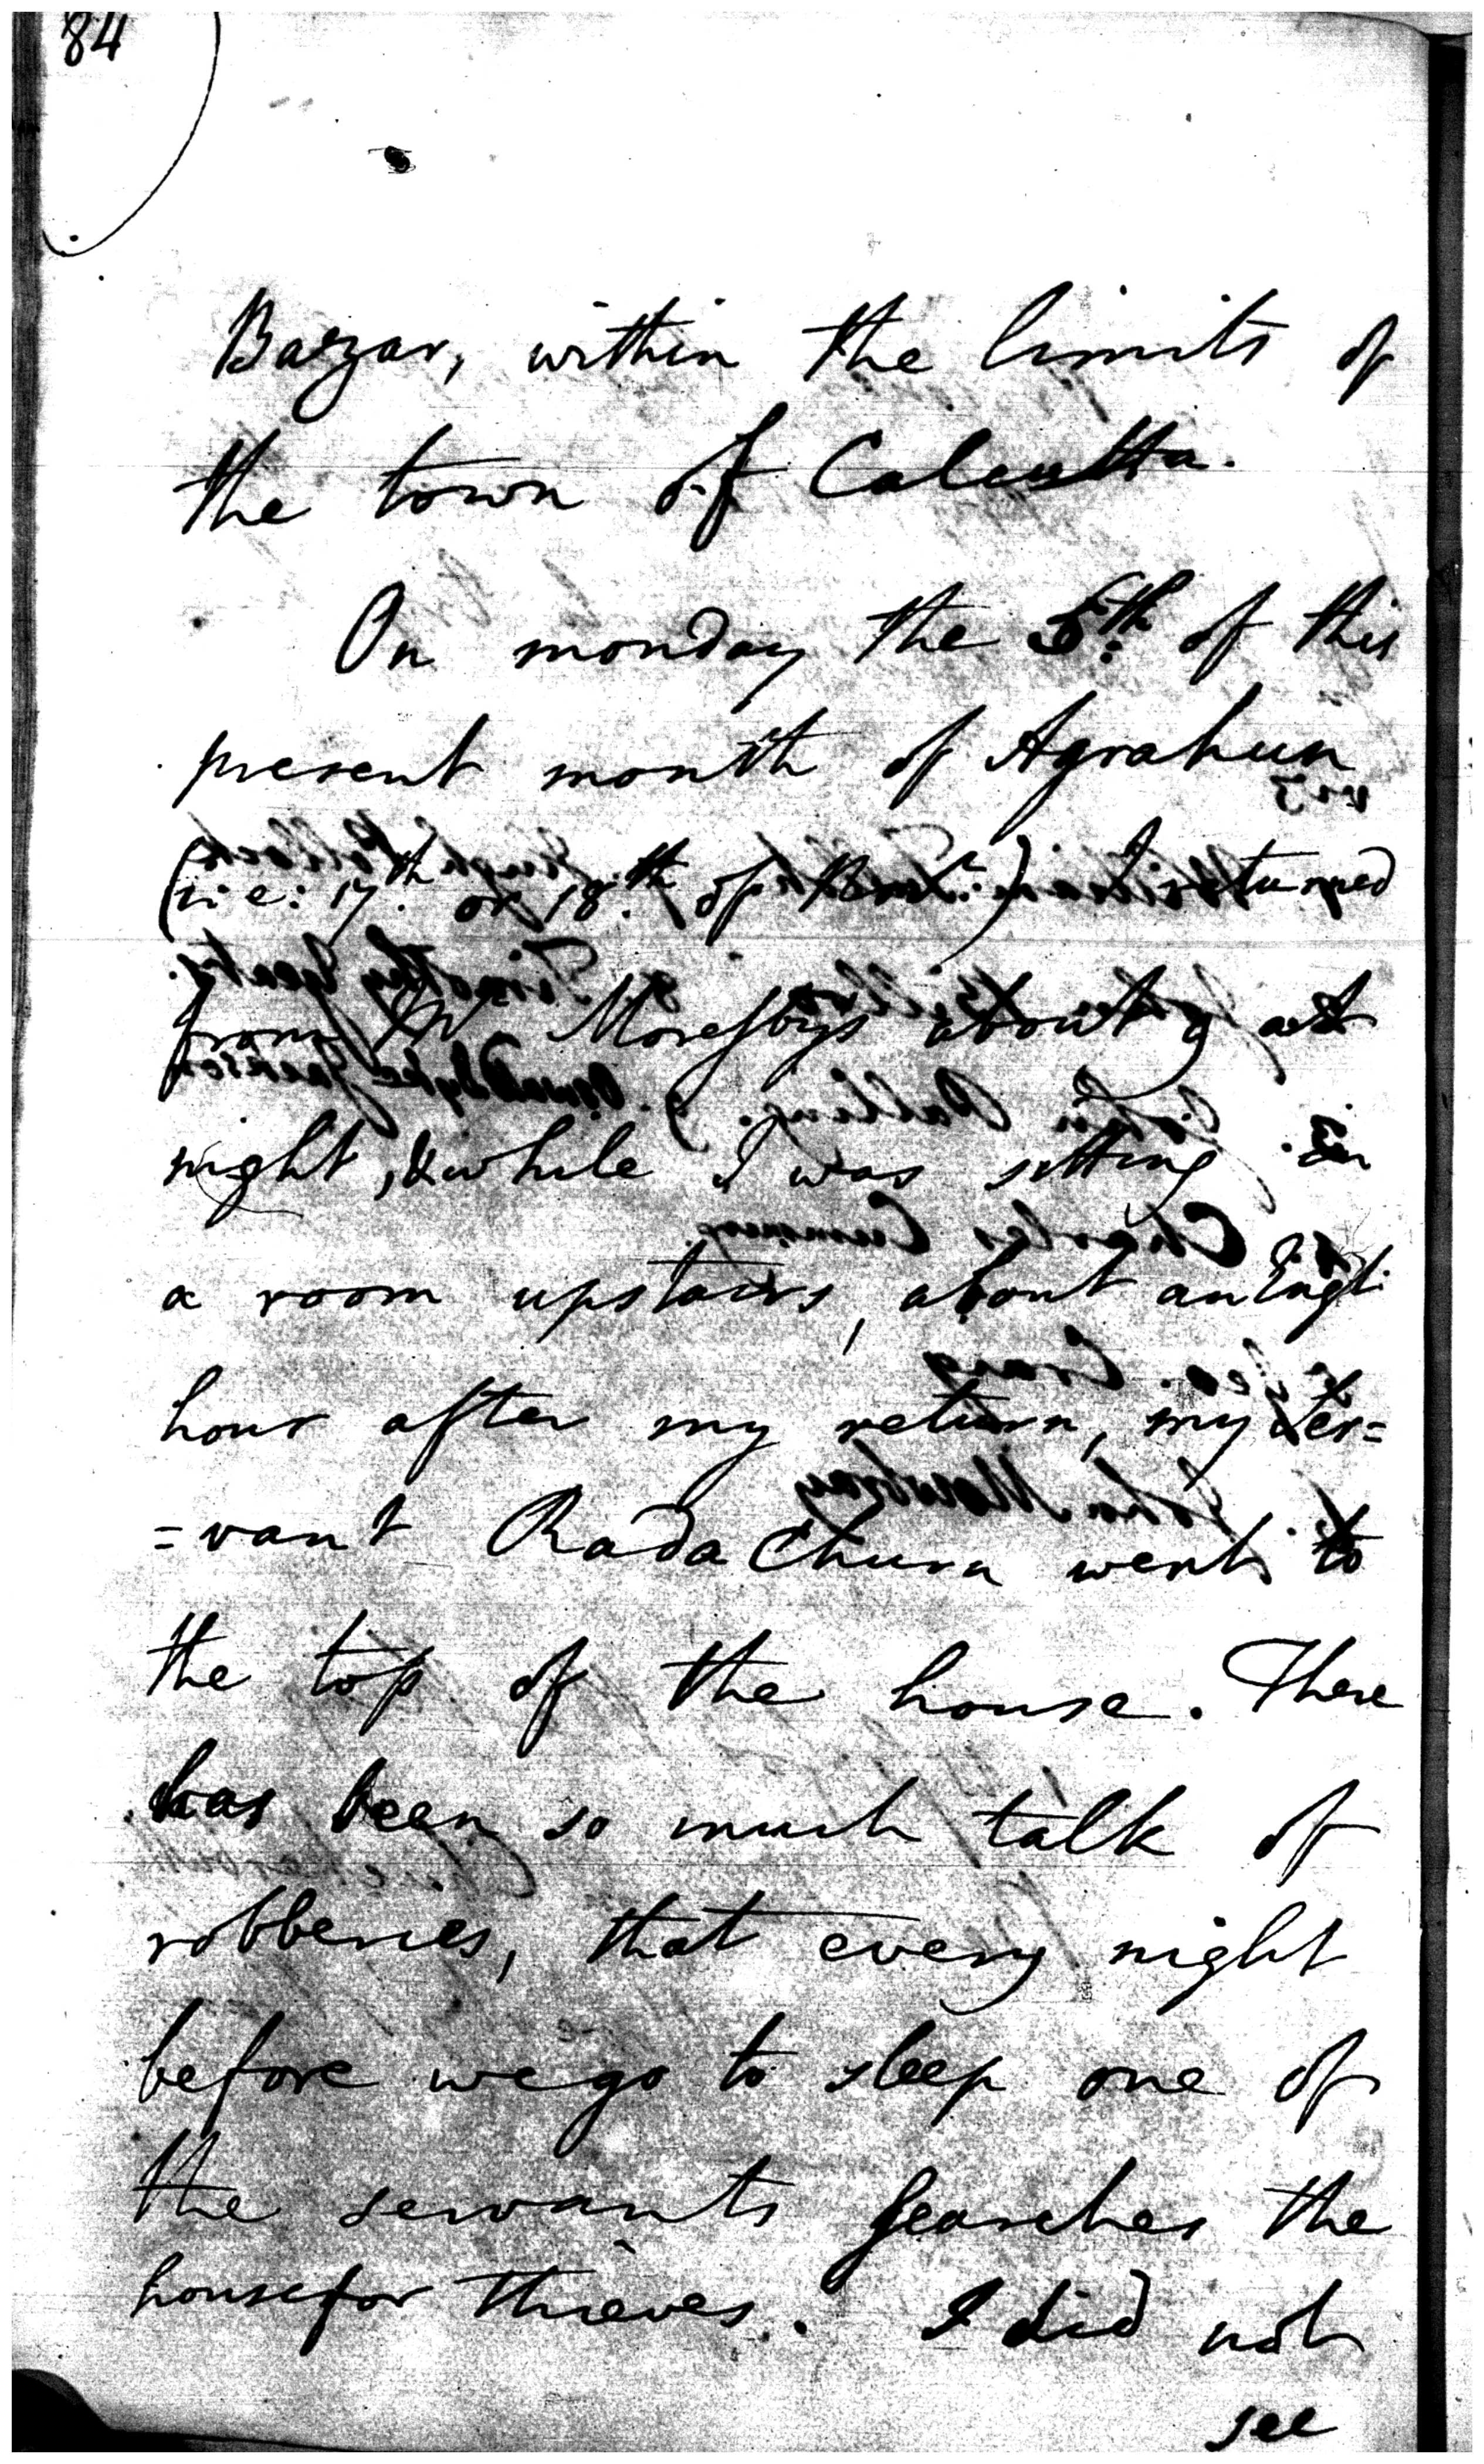 84
Bazar, within the limits of
the town of Calcutta.
On monday the 5th: of this
present month of Agrahun
(i:e: 17th. or 18.th of Novr:) I returned
from Mr. Moresbys about 9 at
night, & while I was sitting in
a room upstairs, about an Engl:
hour after my return, my ser=
=vant Rada Churn went to
the top of the house. There
has been so much talk of
robberies, that every night
before we go to sleep one of
the servants searches the
house for thieves. I did not
see